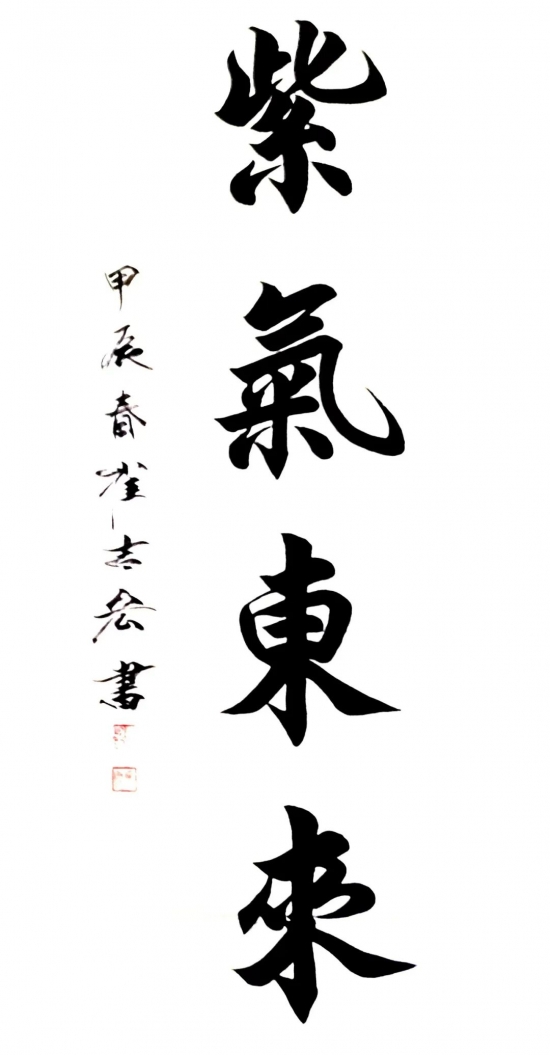 紫氣東來
甲辰春崔志宏書